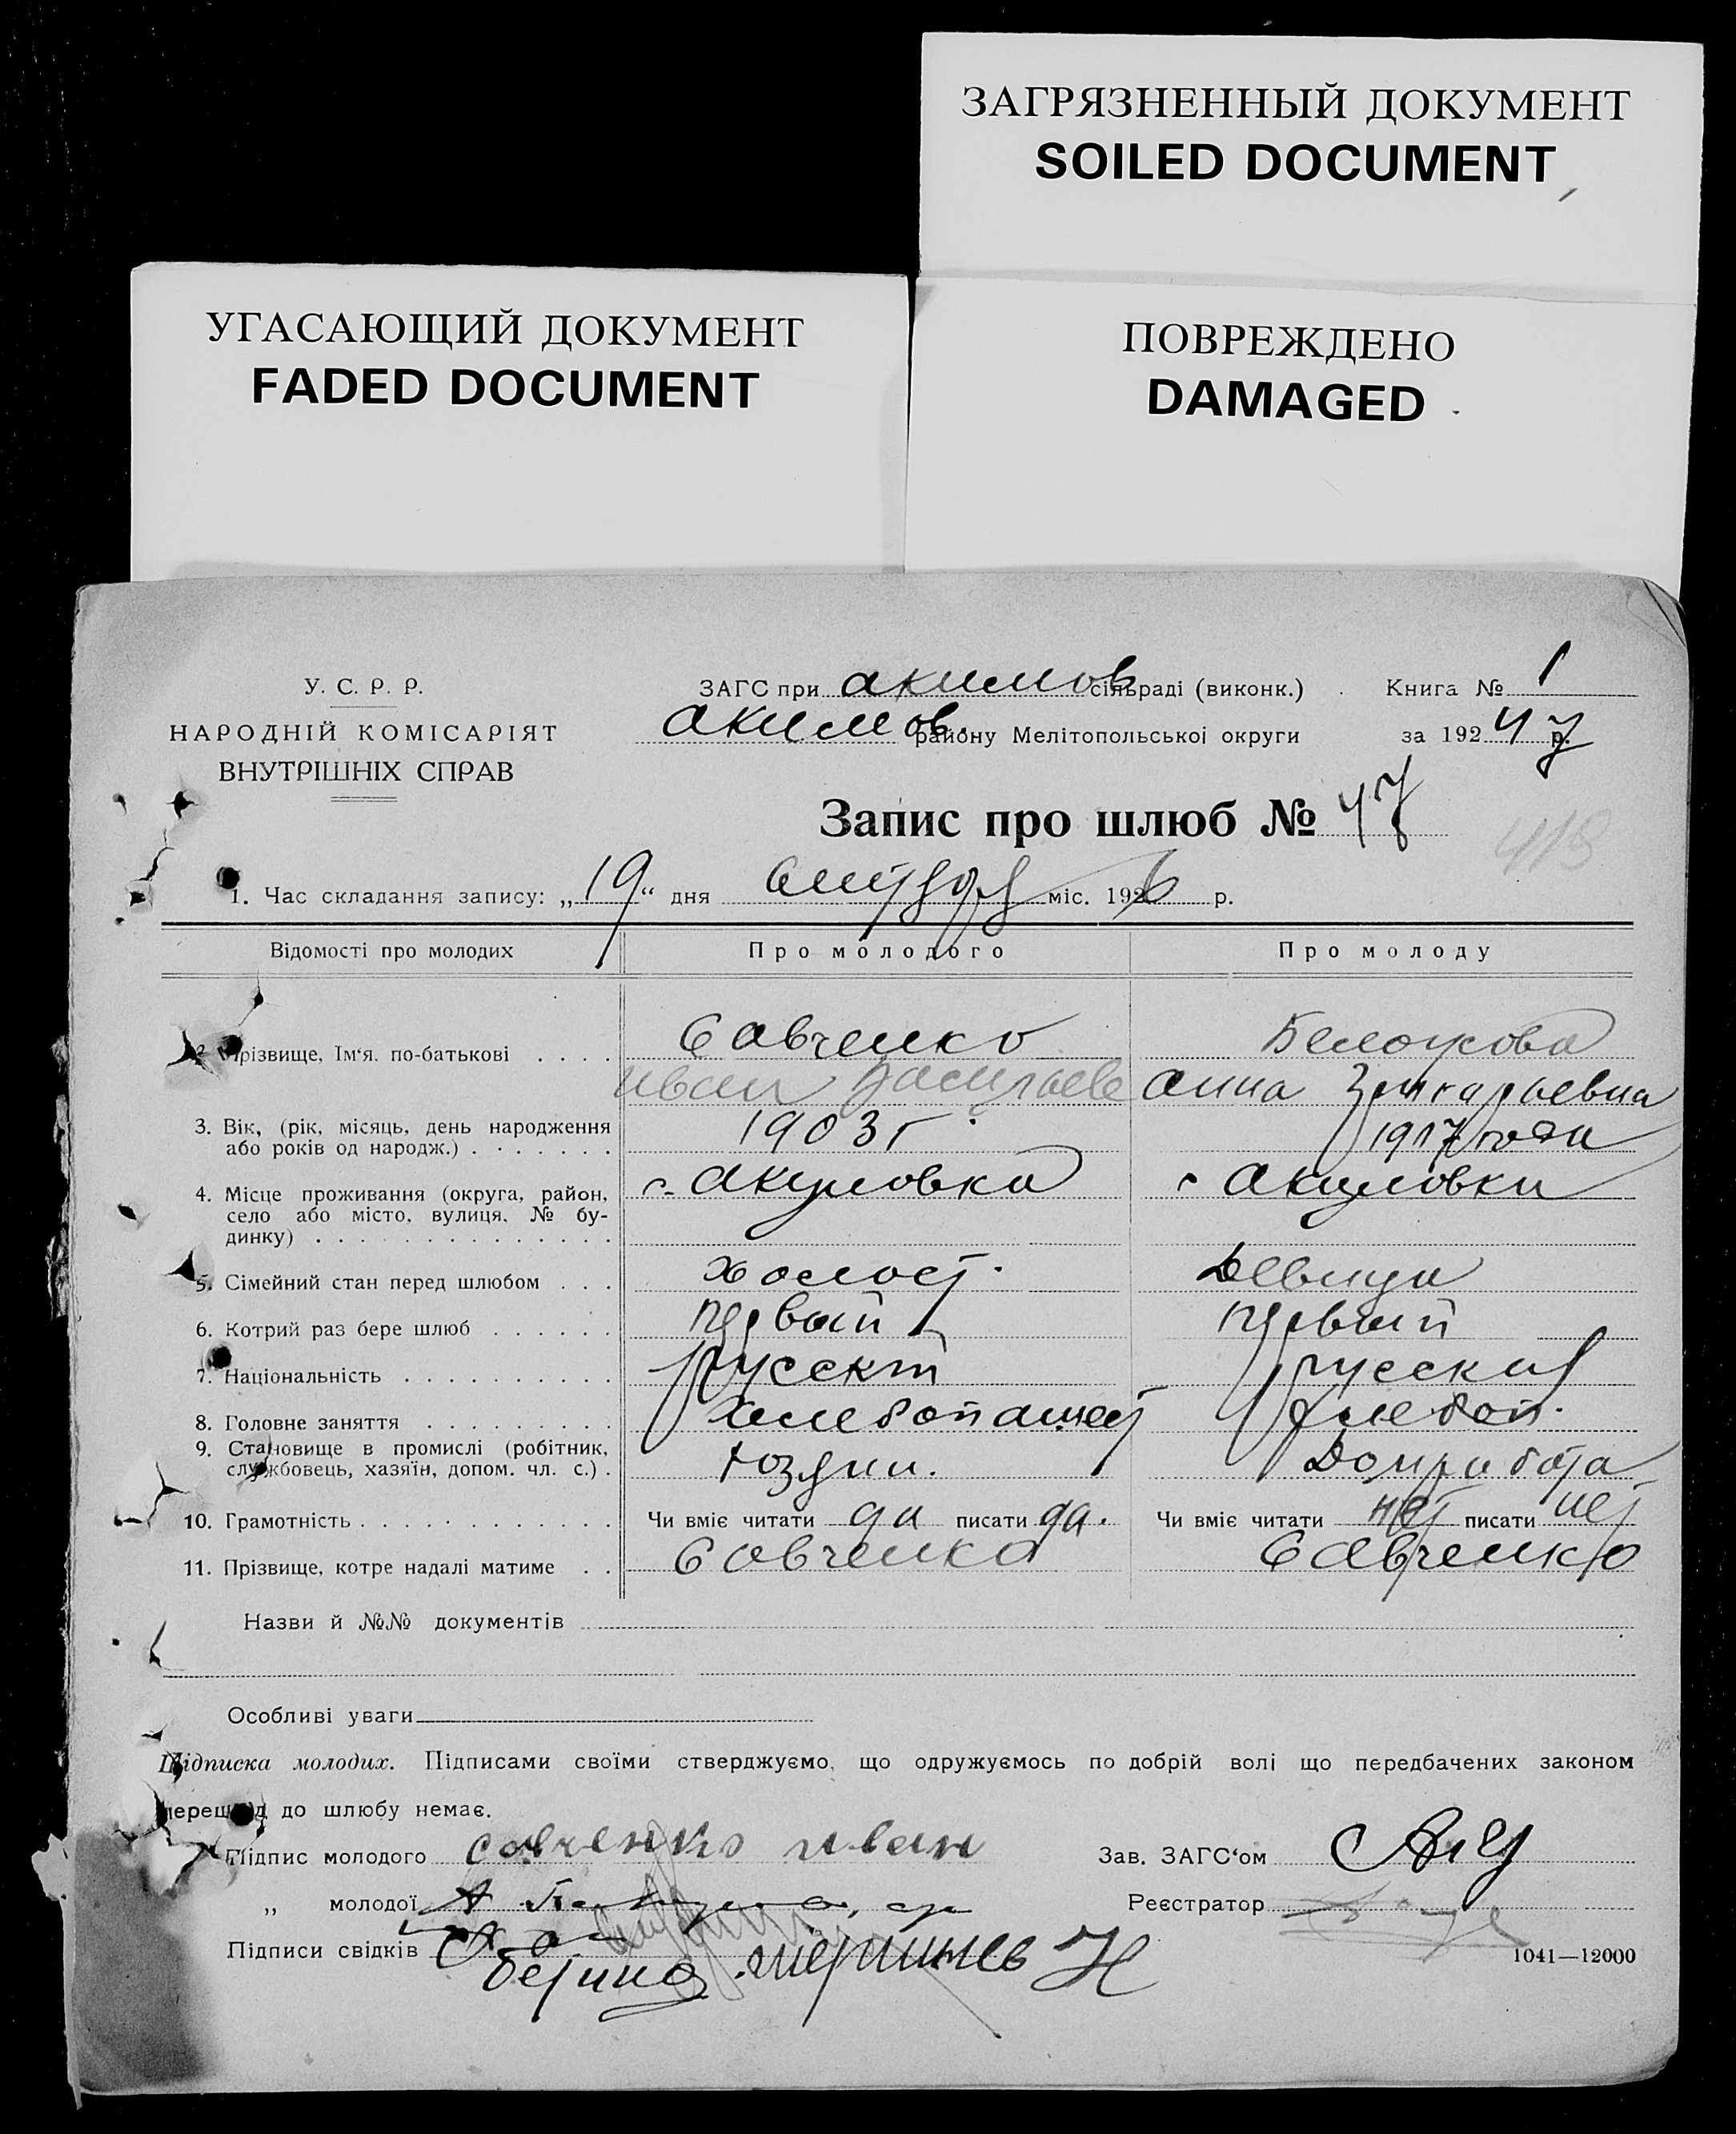 ЗАГРЯЗНЕННЫЙ ДОКУМЕНТ
SOILED DOCUMENT
УГАСАЮЩИЙ ДОКУМЕНТ
FADED DOCUMENT
ПОВРЕЖДЕНО
DAMAGED
У. С. Р. Р.
НАРОДНІЙ КОМІСАРІЯТ
ВНУТРІШНІХ СПРАВ
ЗАГС при Акимов сільраді (виконк.)
Акимов. району Мелітопольської округи
Книга № 1
за 192 р.
Запис про шлюб № 47
1. Час складання запису: „19" дня міс. 1926 р.
Відомості про молодих Про молодого Про молоду
2. Прізвище, Ім'я. по-батькові Савченко
Иван Васильев Анна Захарьевна
3. Вік, (рік, місяць, день народження 1903 г
або років од народж.) года
4. Місце проживання (округа, район, с. Акимовка с Акимовки
село або місто, вулиця, № бу-
динку)
5. Сімейний стан перед шлюбом Холост. Девица
6. Котрий раз бере шлюб первый первый
7. Національність русский русская
8. Головне заняття Хлебопашест Хлебоп.
9. Становище в промислі (робітник, Хозяин. Домработа
службовець, хазяїн, допом. чл. с.)
10. Грамотність Чи вміє читати да писати да. Чи вміє читати нет писати нет
11. Прізвище, котре надалі матиме Савченко Савченко
Назви й №№ документів
Особливі уваги
Підписка молодих. Підписами своїми стверджуємо, що одружуємось по добрій волі що передбачених законом
перешкод до шлюбу немає.
Підпис молодого Савченко иван Зав. ЗАГС'ом
„ молодої Реєстратор
Підписи свідків
1041—12000